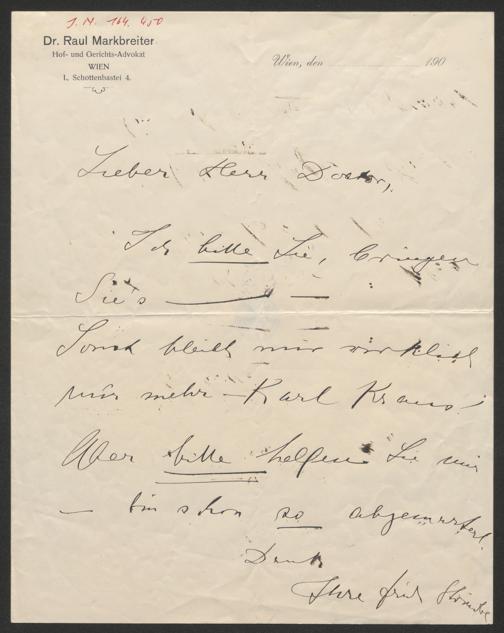 J. N. 164.450
Dr. Raul Markbreiter
Hof- und Gerichts-Advokat
WIEN
I., Schottenbastei 4.
Wien, den 190
Lieber Herr Doctor,
Ich bitte Sie, bringen
Sie's — —
Sonst bleibt mir wirklich
nur mehr – Karl Kraus!
Aber bitte helfen Sie mir
— bin schon so abgemartert.
Dank
Ihre